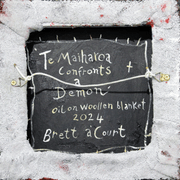 'Te Maiharoa
Confronts
a
Demon'
oil on woollen blanket
2024
Brett a'Court